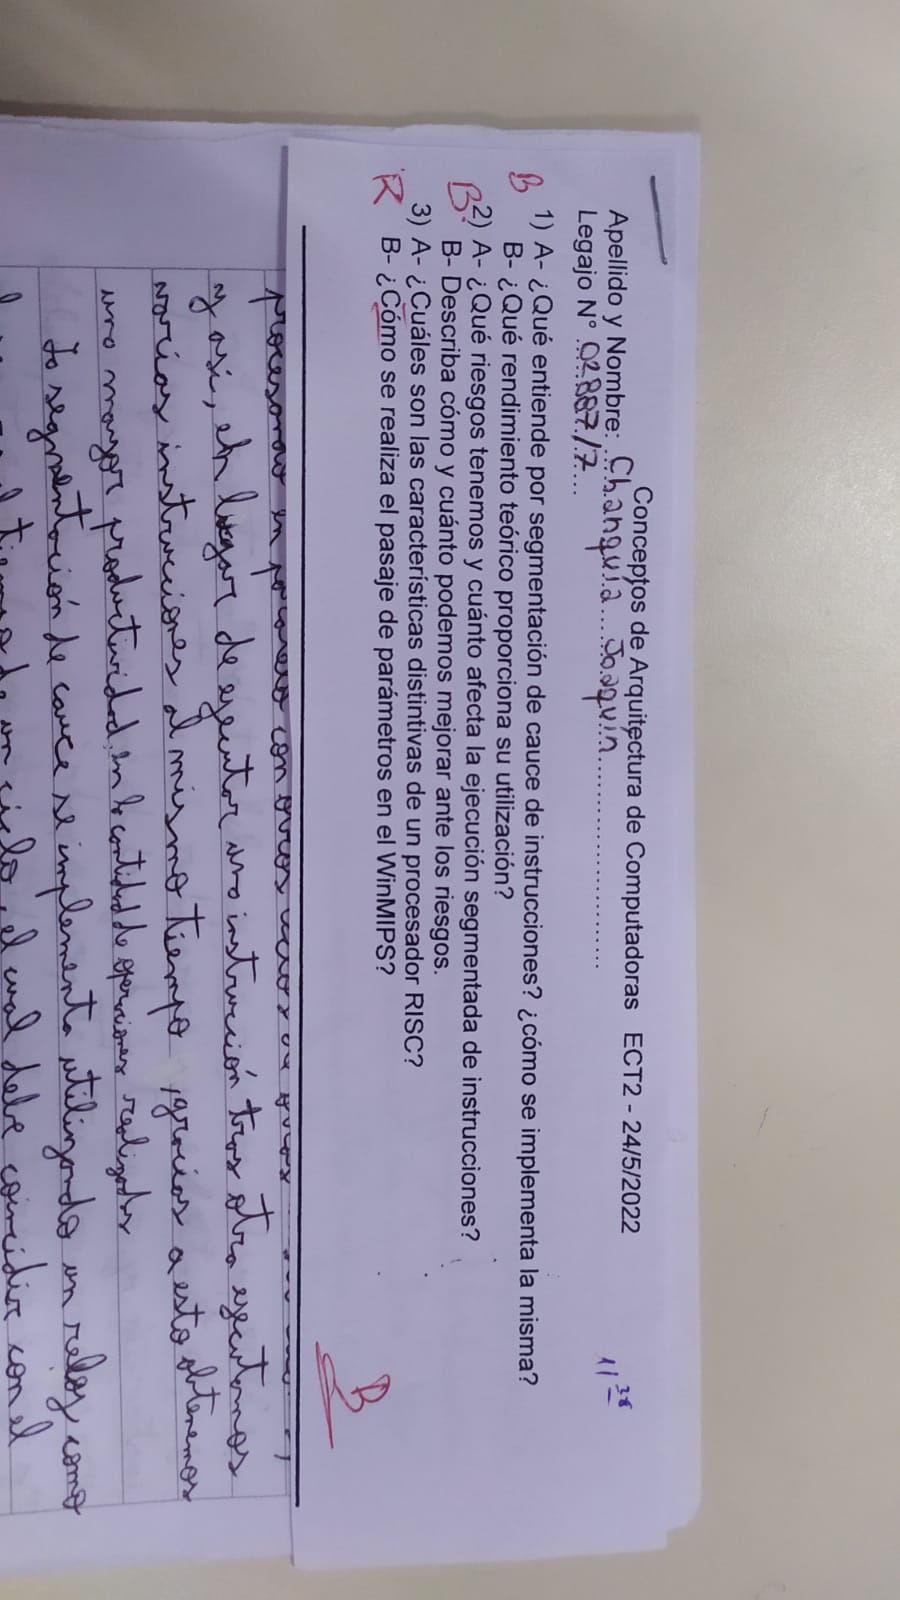 Conceptos de Arquitectura de Computadoras ECT2 - 24/5/2022
Apellido y Nombre: Chanquía Joaquín
11 38
Legajo N° 02887/7
B
1) A- ¿Qué entiende por segmentación de cauce de instrucciones? ¿cómo se implementa la misma?
B- ¿Qué rendimiento teórico proporciona su utilización?
B
2) A- ¿Qué riesgos tenemos y cuánto afecta la ejecución segmentada de instrucciones?
B- Describa cómo y cuánto podemos mejorar ante los riesgos.
3) A- ¿Cuáles son las características distintivas de un procesador RISC?
R
B- ¿Cómo se realiza el pasaje de parámetros en el WinMIPS?
B
procesando en paralelo con otros de otros
y así, en lugar de ejecutar una instrucción tras otra ejecutamos
varias instrucciones al mismo tiempo, gracias a esto obtenemos
una mayor productividad en la cantidad de operaciones realizadas
La segmentación de cauce se implementa utilizando un reloj como
tiempo de un ciclo, el cual debe coincidir con el